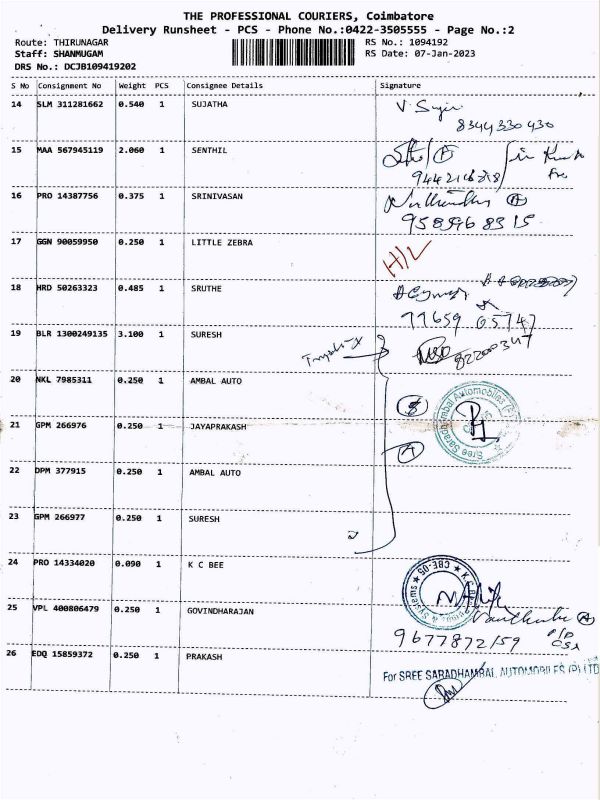 THE PROFESSIONAL COURIERS, Coimbatore
Delivery Runsheet - PCS - Phone No.:0422-3505555 - Page No.:2
Route: THIRUNAGAR
Staff: SHANMUGAM
DRS No.: DCJB109419202
RS No.: 1094192
RS Date: 07-Jan-2023
S No Consignment No Weight PCS Consignee Details Signature
14 SLM 311281662 0.540 1 SUJATHA
8344330430
15 MAA 567945119 2.060 1 SENTHIL
16 PRO 14387756 0.375 1 SRINIVASAN
17 GGN 90059950 0.250 1 LITTLE ZEBRA
H/L
18 HRD 50263323 0.485 1 SRUTHE
77659 65747
19 BLR 1300249135 3.100 1 SURESH
20 NKL 7985311 0.250 1 AMBAL AUTO
21 GPM 266976 0.250 1 JAYAPRAKASH
A
Sree Saradhambal Automobiles (P)
22 DPM 377915 0.250 1 AMBAL AUTO
23 GPM 266977 0.250 1 SURESH
24 PRO 14334020 0.090 1 K C BEE
CBE-05
25 VPL 400806479 0.250 1 GOVINDHARAJAN
9677872159
26 EDQ 15859372 0.250 1 PRAKASH
For SREE SARADHAMBAL AUTOMOBILES (P) LTD